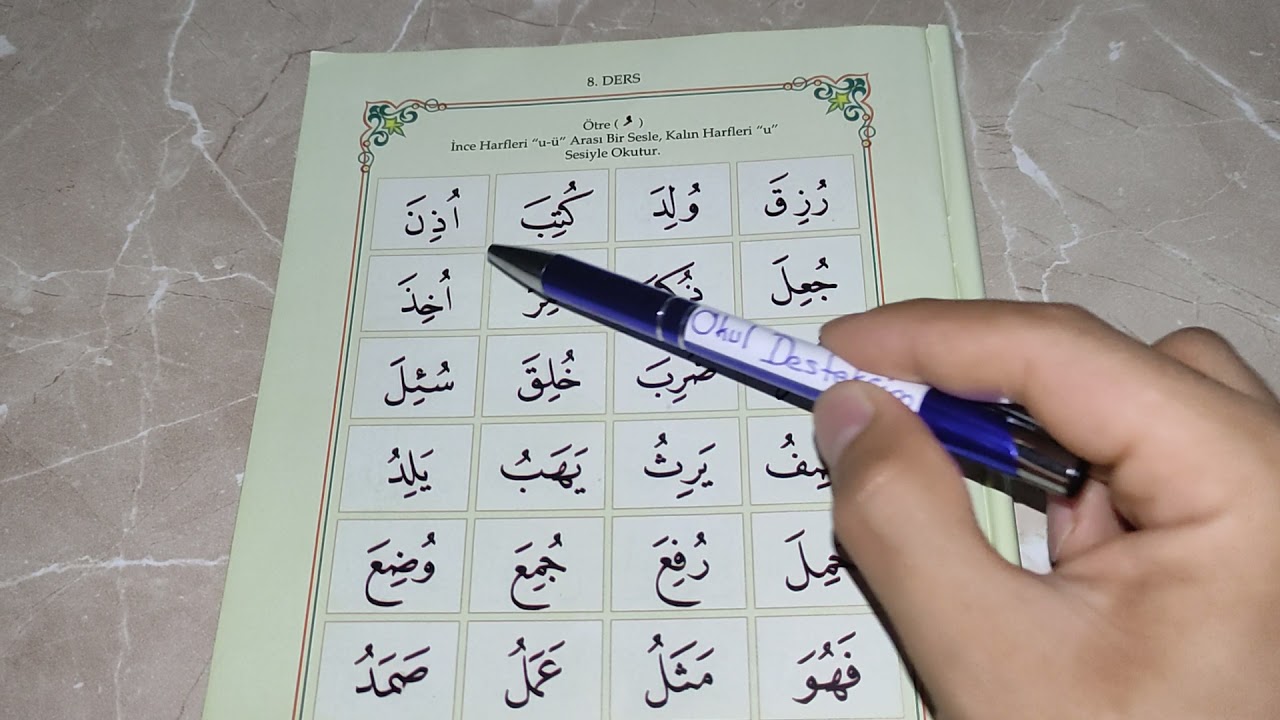 8. DERS
Ötre ( ُ )
İnce Harfleri “u-ü” Arası Bir Sesle, Kalın Harfleri “u”
Sesiyle Okutur.
رُزِقَ وُلِدَ كُتِبَ اُذِنَ
جُعِلَ اُخِذَ
ضُرِبَ خُلِقَ سُئِلَ
يَرِثُ يَهَبُ يَلِدُ
رُفِعَ جُمِعَ وُضِعَ
فَهُوَ مَثَلُ عَمَلُ صَمَدُ
Okul